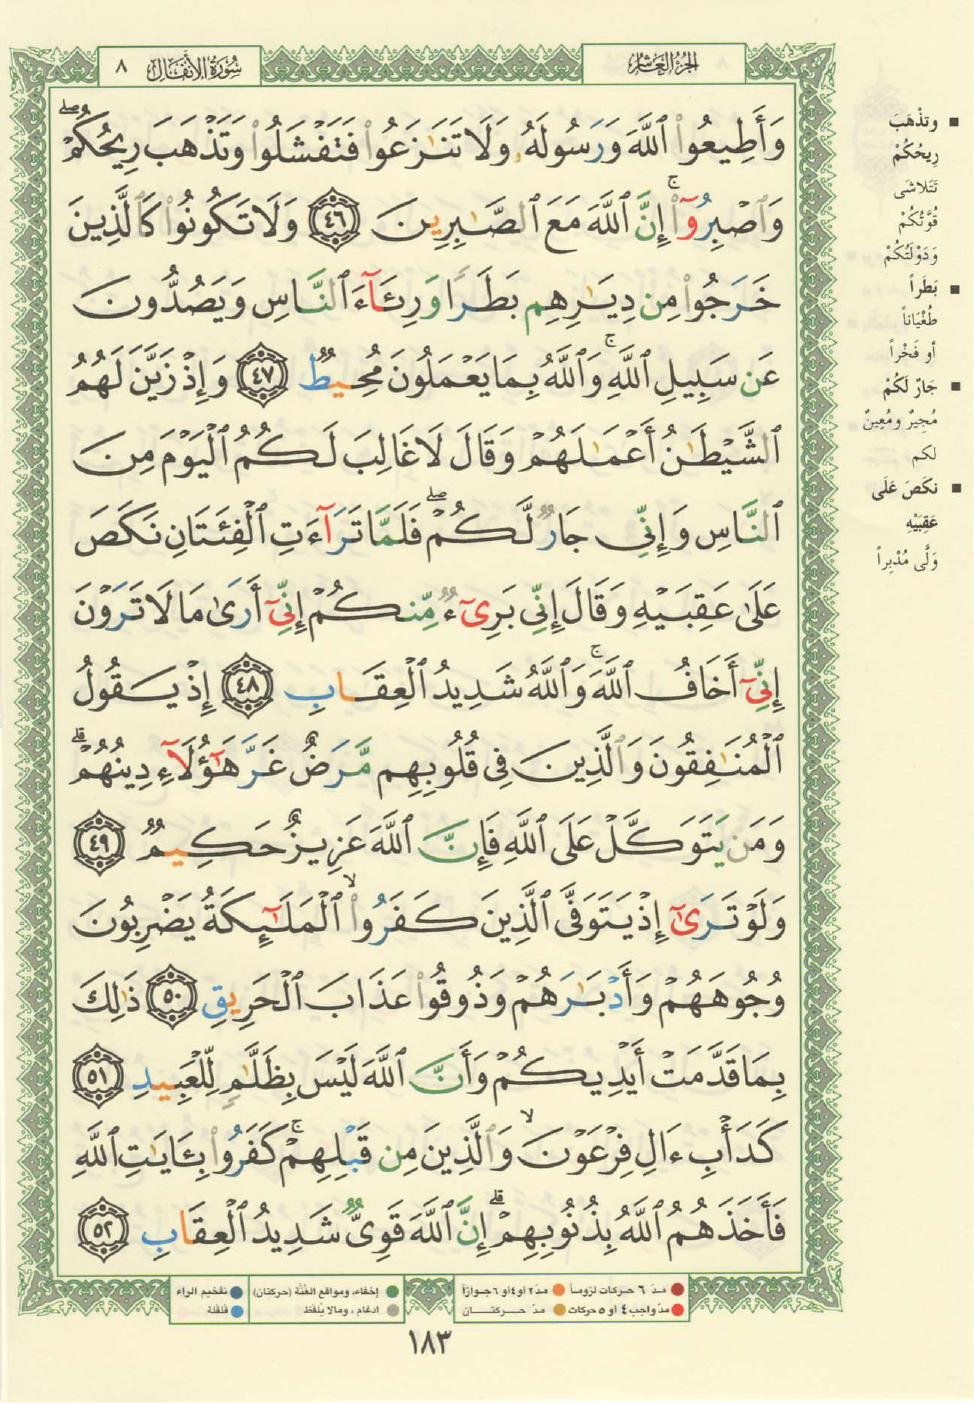 الجزء العاشر
سورة الأنفال ٨
وَأَطِيعُوا۟ ٱللَّهَ وَرَسُولَهُۥ وَلَا تَنَٰزَعُوا۟ فَتَفْشَلُوا۟ وَتَذْهَبَ رِيحُكُمْ ۖ
وَٱصْبِرُوٓا۟ ۚ إِنَّ ٱللَّهَ مَعَ ٱلصَّٰبِرِينَ ٤٦ وَلَا تَكُونُوا۟ كَٱلَّذِينَ
خَرَجُوا۟ مِن دِيَٰرِهِم بَطَرًا وَرِئَآءَ ٱلنَّاسِ وَيَصُدُّونَ
عَن سَبِيلِ ٱللَّهِ ۚ وَٱللَّهُ بِمَا يَعْمَلُونَ مُحِيطٌ ٤٧ وَإِذْ زَيَّنَ لَهُمُ
ٱلشَّيْطَٰنُ أَعْمَٰلَهُمْ وَقَالَ لَا غَالِبَ لَكُمُ ٱلْيَوْمَ مِنَ
ٱلنَّاسِ وَإِنِّى جَارٌ لَّكُمْ ۖ فَلَمَّا تَرَآءَتِ ٱلْفِئَتَانِ نَكَصَ
عَلَىٰ عَقِبَيْهِ وَقَالَ إِنِّى بَرِىٓءٌ مِّنكُمْ إِنِّىٓ أَرَىٰ مَا لَا تَرَوْنَ
إِنِّىٓ أَخَافُ ٱللَّهَ ۚ وَٱللَّهُ شَدِيدُ ٱلْعِقَابِ ٤٨ إِذْ يَقُولُ
ٱلْمُنَٰفِقُونَ وَٱلَّذِينَ فِى قُلُوبِهِم مَّرَضٌ غَرَّ هَٰٓؤُلَآءِ دِينُهُمْ ۗ
وَمَن يَتَوَكَّلْ عَلَى ٱللَّهِ فَإِنَّ ٱللَّهَ عَزِيزٌ حَكِيمٌ ٤٩
وَلَوْ تَرَىٰٓ إِذْ يَتَوَفَّى ٱلَّذِينَ كَفَرُوا۟ ۙ ٱلْمَلَٰٓئِكَةُ يَضْرِبُونَ
وُجُوهَهُمْ وَأَدْبَٰرَهُمْ وَذُوقُوا۟ عَذَابَ ٱلْحَرِيقِ ٥٠ ذَٰلِكَ
بِمَا قَدَّمَتْ أَيْدِيكُمْ وَأَنَّ ٱللَّهَ لَيْسَ بِظَلَّٰمٍ لِّلْعَبِيدِ ٥١
كَدَأْبِ ءَالِ فِرْعَوْنَ ۙ وَٱلَّذِينَ مِن قَبْلِهِمْ ۚ كَفَرُوا۟ بِـَٔايَٰتِ ٱللَّهِ
فَأَخَذَهُمُ ٱللَّهُ بِذُنُوبِهِمْ ۗ إِنَّ ٱللَّهَ قَوِىٌّ شَدِيدُ ٱلْعِقَابِ ٥٢
■ وتذْهَبَ
رِيحُكُمْ
تَتَلاشَى
قُوَّتُكُمْ
وَدَوْلَتُكُمْ
■ بَطَراً
طُغْيَاناً
أو فَخْراً
■ جَارٌ لَكُمْ
مُجِيرٌ ومُعِينٌ
لكم
■ نكَصَ عَلَى
عَقِبَيْهِ
وَلَّى مُدْبِراً
مدّ ٦ حركات لزوماً مدّ ٢ او ٤ او ٦ جوازاً
مدّ واجب ٤ أو ٥ حركات مدّ حركتان
إخفاء، ومواقع الغُنَّة (حركتان) تفخيم الراء
ادغام، ومالا يُلفظ قلقلة
١٨٣